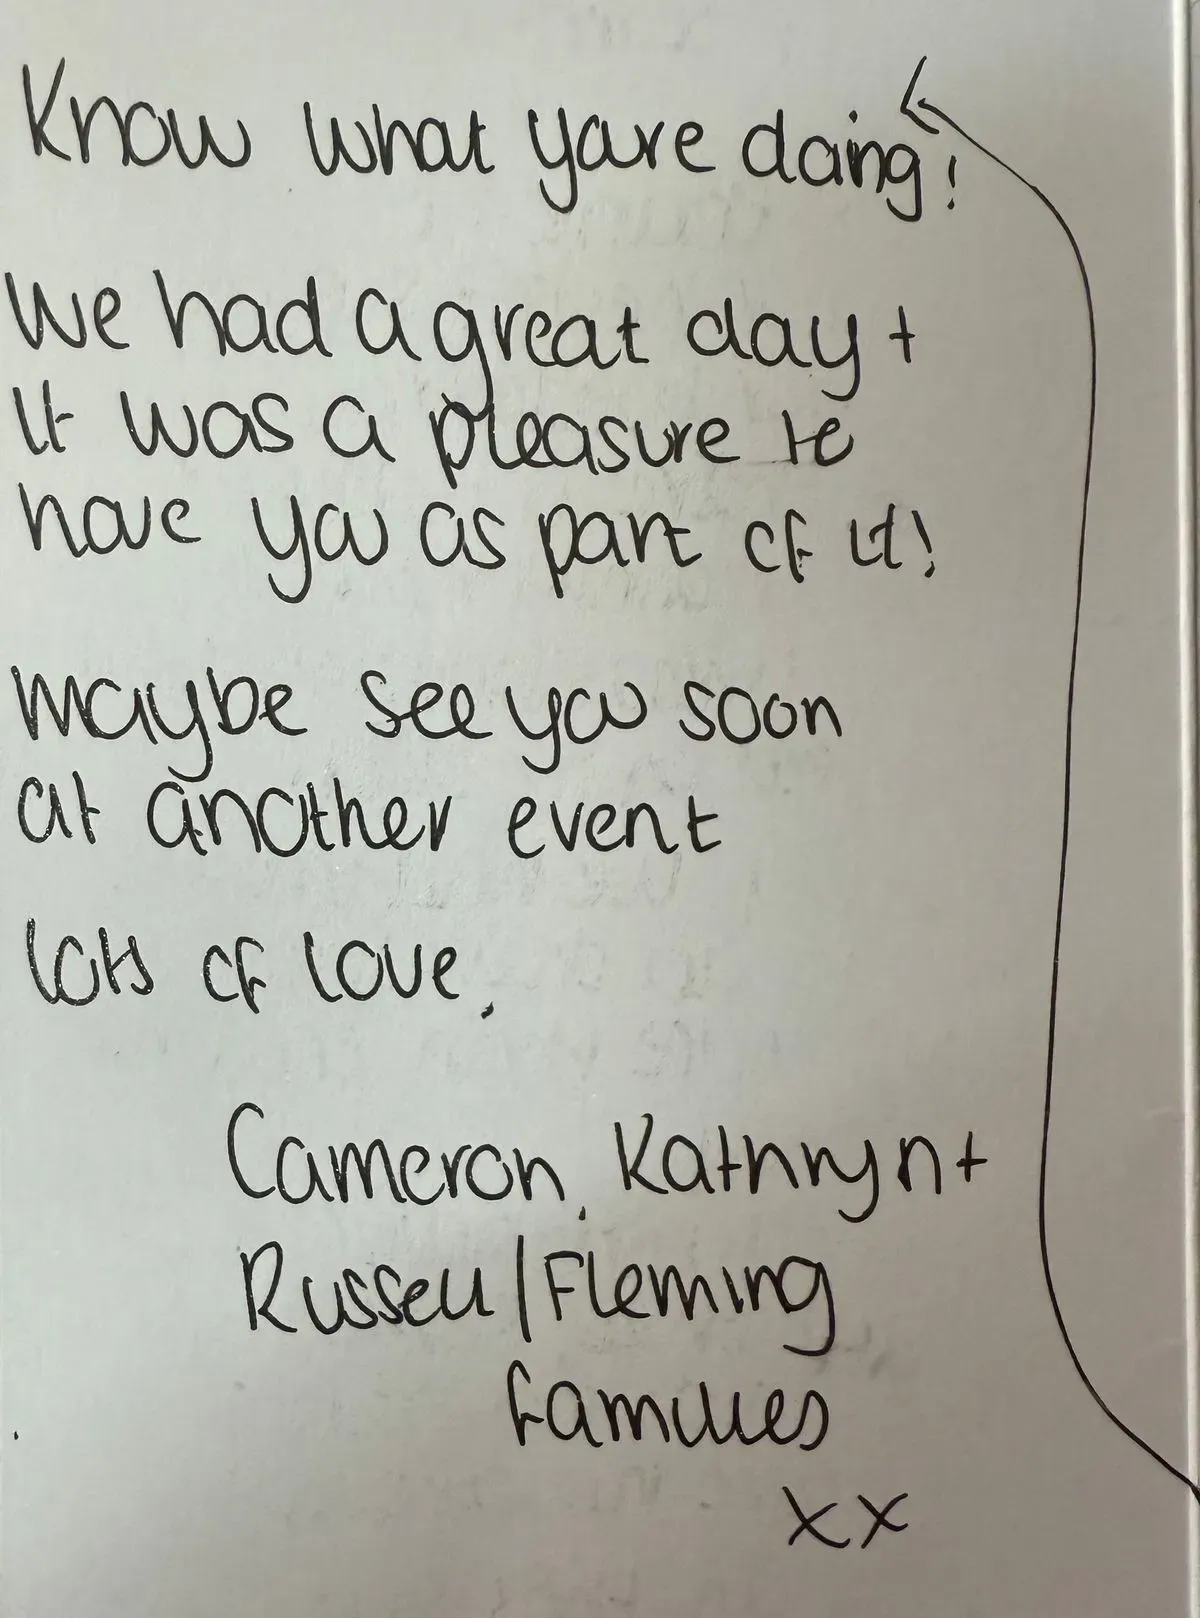 Know what you're doing!
We had a great day +
it was a pleasure to
have you as part of it!
Maybe see you soon
at another event
Lots of love,
Cameron, Kathryn +
Russell/Fleming
families
xx